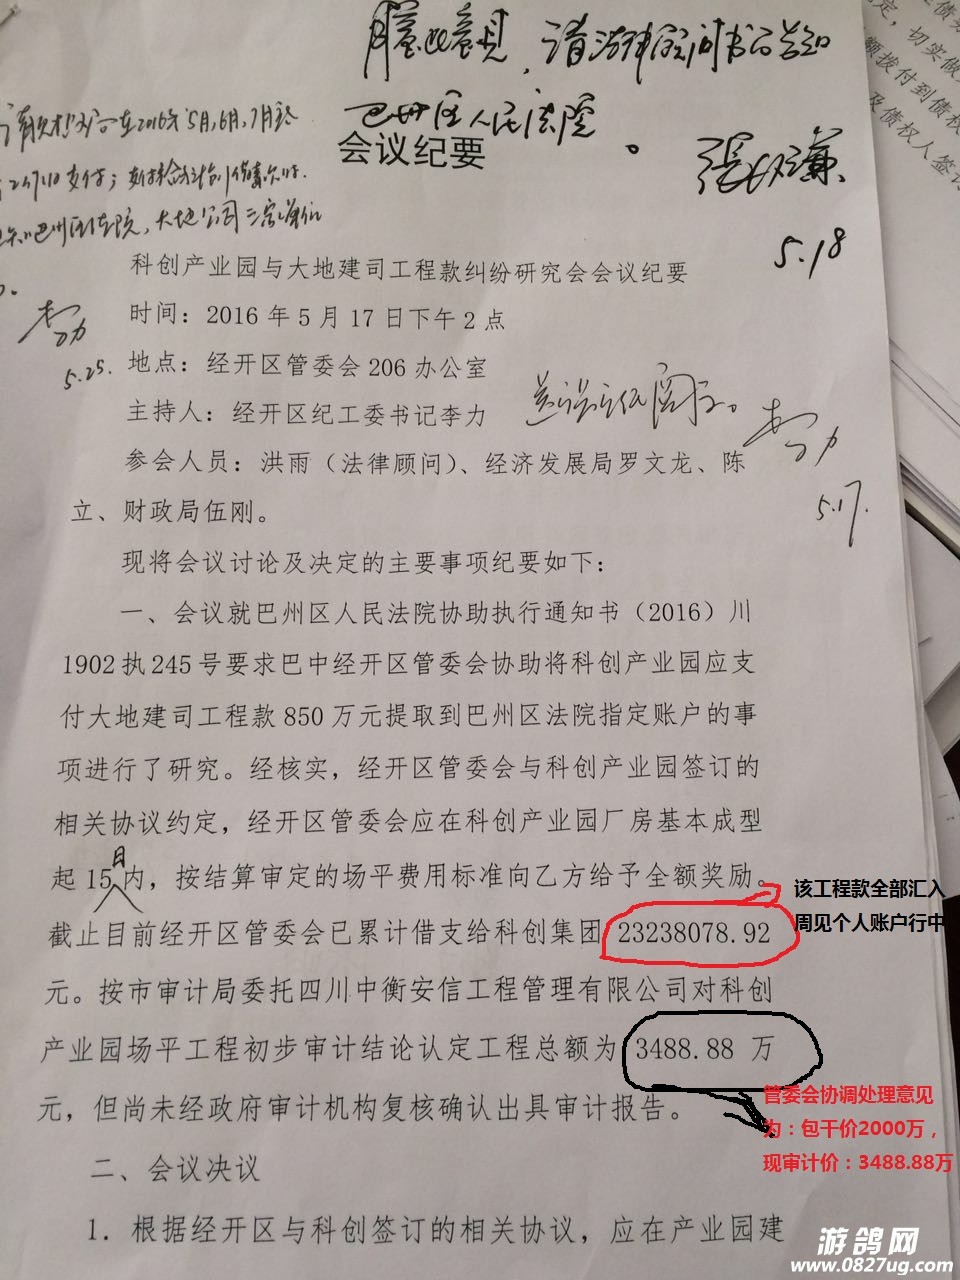 请法律顾问书面告知
巴州区人民法院。
会议纪要
5.18
科创产业园与大地建司工程款纠纷研究会会议纪要
时间：2016年5月17日下午2点
李力
5.25.
地点：经开区管委会206办公室
主持人：经开区纪工委书记李力
李力
5.17.
参会人员：洪雨（法律顾问）、经济发展局罗文龙、陈
立、财政局伍刚。
现将会议讨论及决定的主要事项纪要如下：
一、会议就巴州区人民法院协助执行通知书（2016）川
1902执245号要求巴中经开区管委会协助将科创产业园应支
付大地建司工程款850万元提取到巴州区法院指定账户的事
项进行了研究。经核实，经开区管委会与科创产业园签订的
相关协议约定，经开区管委会应在科创产业园厂房基本成型
起15日内，按结算审定的场平费用标准向乙方给予全额奖励。
截止目前经开区管委会已累计借支给科创集团23238078.92
元。按市审计局委托四川中衡安信工程管理有限公司对科创
产业园场平工程初步审计结论认定工程总额为3488.88万
元，但尚未经政府审计机构复核确认出具审计报告。
二、会议决议
1.根据经开区与科创签订的相关协议，应在产业园建
该工程款全部汇入
周见个人账户行中
管委会协调处理意见
为：包干价2000万，
现审计价：3488.88万
游鸽网
www.0827ug.com